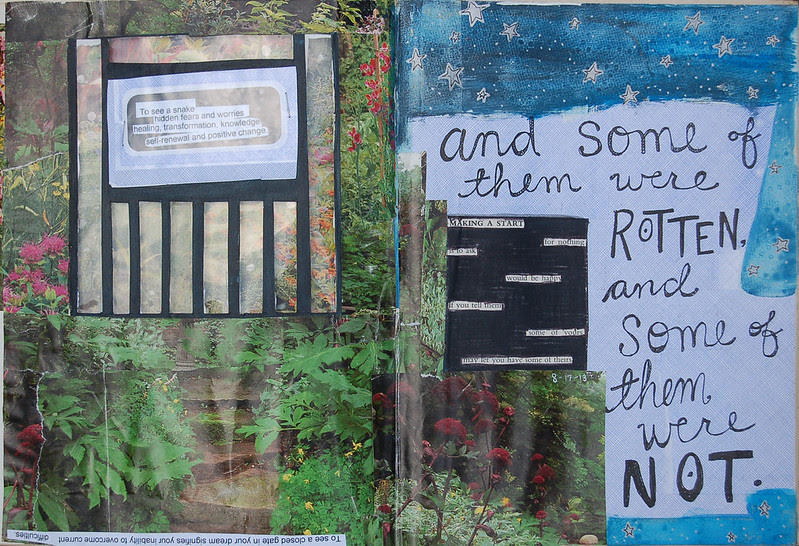 To see a snake
hidden fears and worries
healing, transformation, knowledge
self-renewal and positive change
To see a closed gate in your dream signifies your inability to overcome current
difficulties.
and some of
them were
ROTTEN,
and
some of
them
were
NOT.
MAKING A START
for nothing
is to ask
would be happy
if you tell them
some of yours
may let you have some of theirs
8-17-13